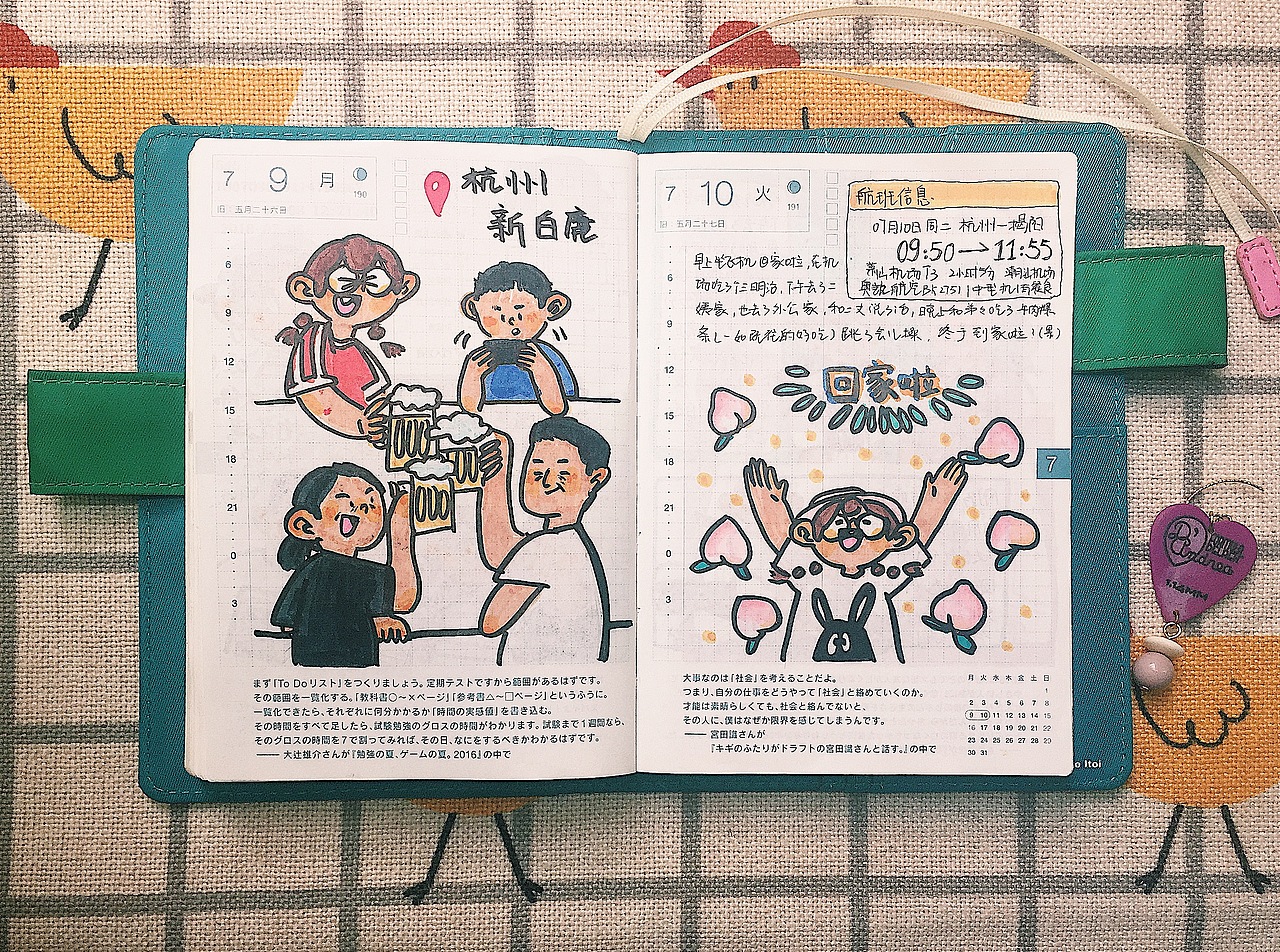 7 9 月
190
旧 五月二十六日
杭州
新白鹿
6
9
12
15
18
21
0
3
まず「To Doリスト」をつくりましょう。定期テストですから範囲があるはずです。
その範囲を一覧化する。「教科書○〜×ページ」「参考書△〜□ページ」というふうに。
一覧化できたら、それぞれに何分かかるか「時間の実感値」を書き込む。
その時間をすべて足したら、試験勉強のグロスの時間がわかります。試験まで1週間なら、
そのグロスの時間を7で割ってみれば、その日、なにをするべきかわかるはずです。
—— 大辻雄介さんが『勉強の夏、ゲームの夏。2016』の中で
7 10 火
191
旧 五月二十七日
航班信息
07月10日 周二 杭州—揭阳
09:50→11:55
萧山机场T3 2小时5分 潮汕机场
早上坐飞机回家啦,在机
场吃了三明治,下午去了二
姨家,也去了外公家,
晚上和弟弟吃了牛肉粿
条(一如既往的好吃) 终于到家啦!(累)
回家啦
6
9
12
15
18
21
0
3
7
大事なのは「社会」を考えることだよ。
つまり、自分の仕事をどうやって「社会」と絡めていくのか。
才能は素晴らしくても、社会と絡んでないと、
その人に、僕はなぜか限界を感じてしまうんです。
—— 宮田識さんが
『キギのふたりがドラフトの宮田識さんと話す。』の中で
月 火 水 木 金 土 日
1
2 3 4 5 6 7 8
9 10 11 12 13 14 15
16 17 18 19 20 21 22
23 24 25 26 27 28 29
30 31
o Itoi